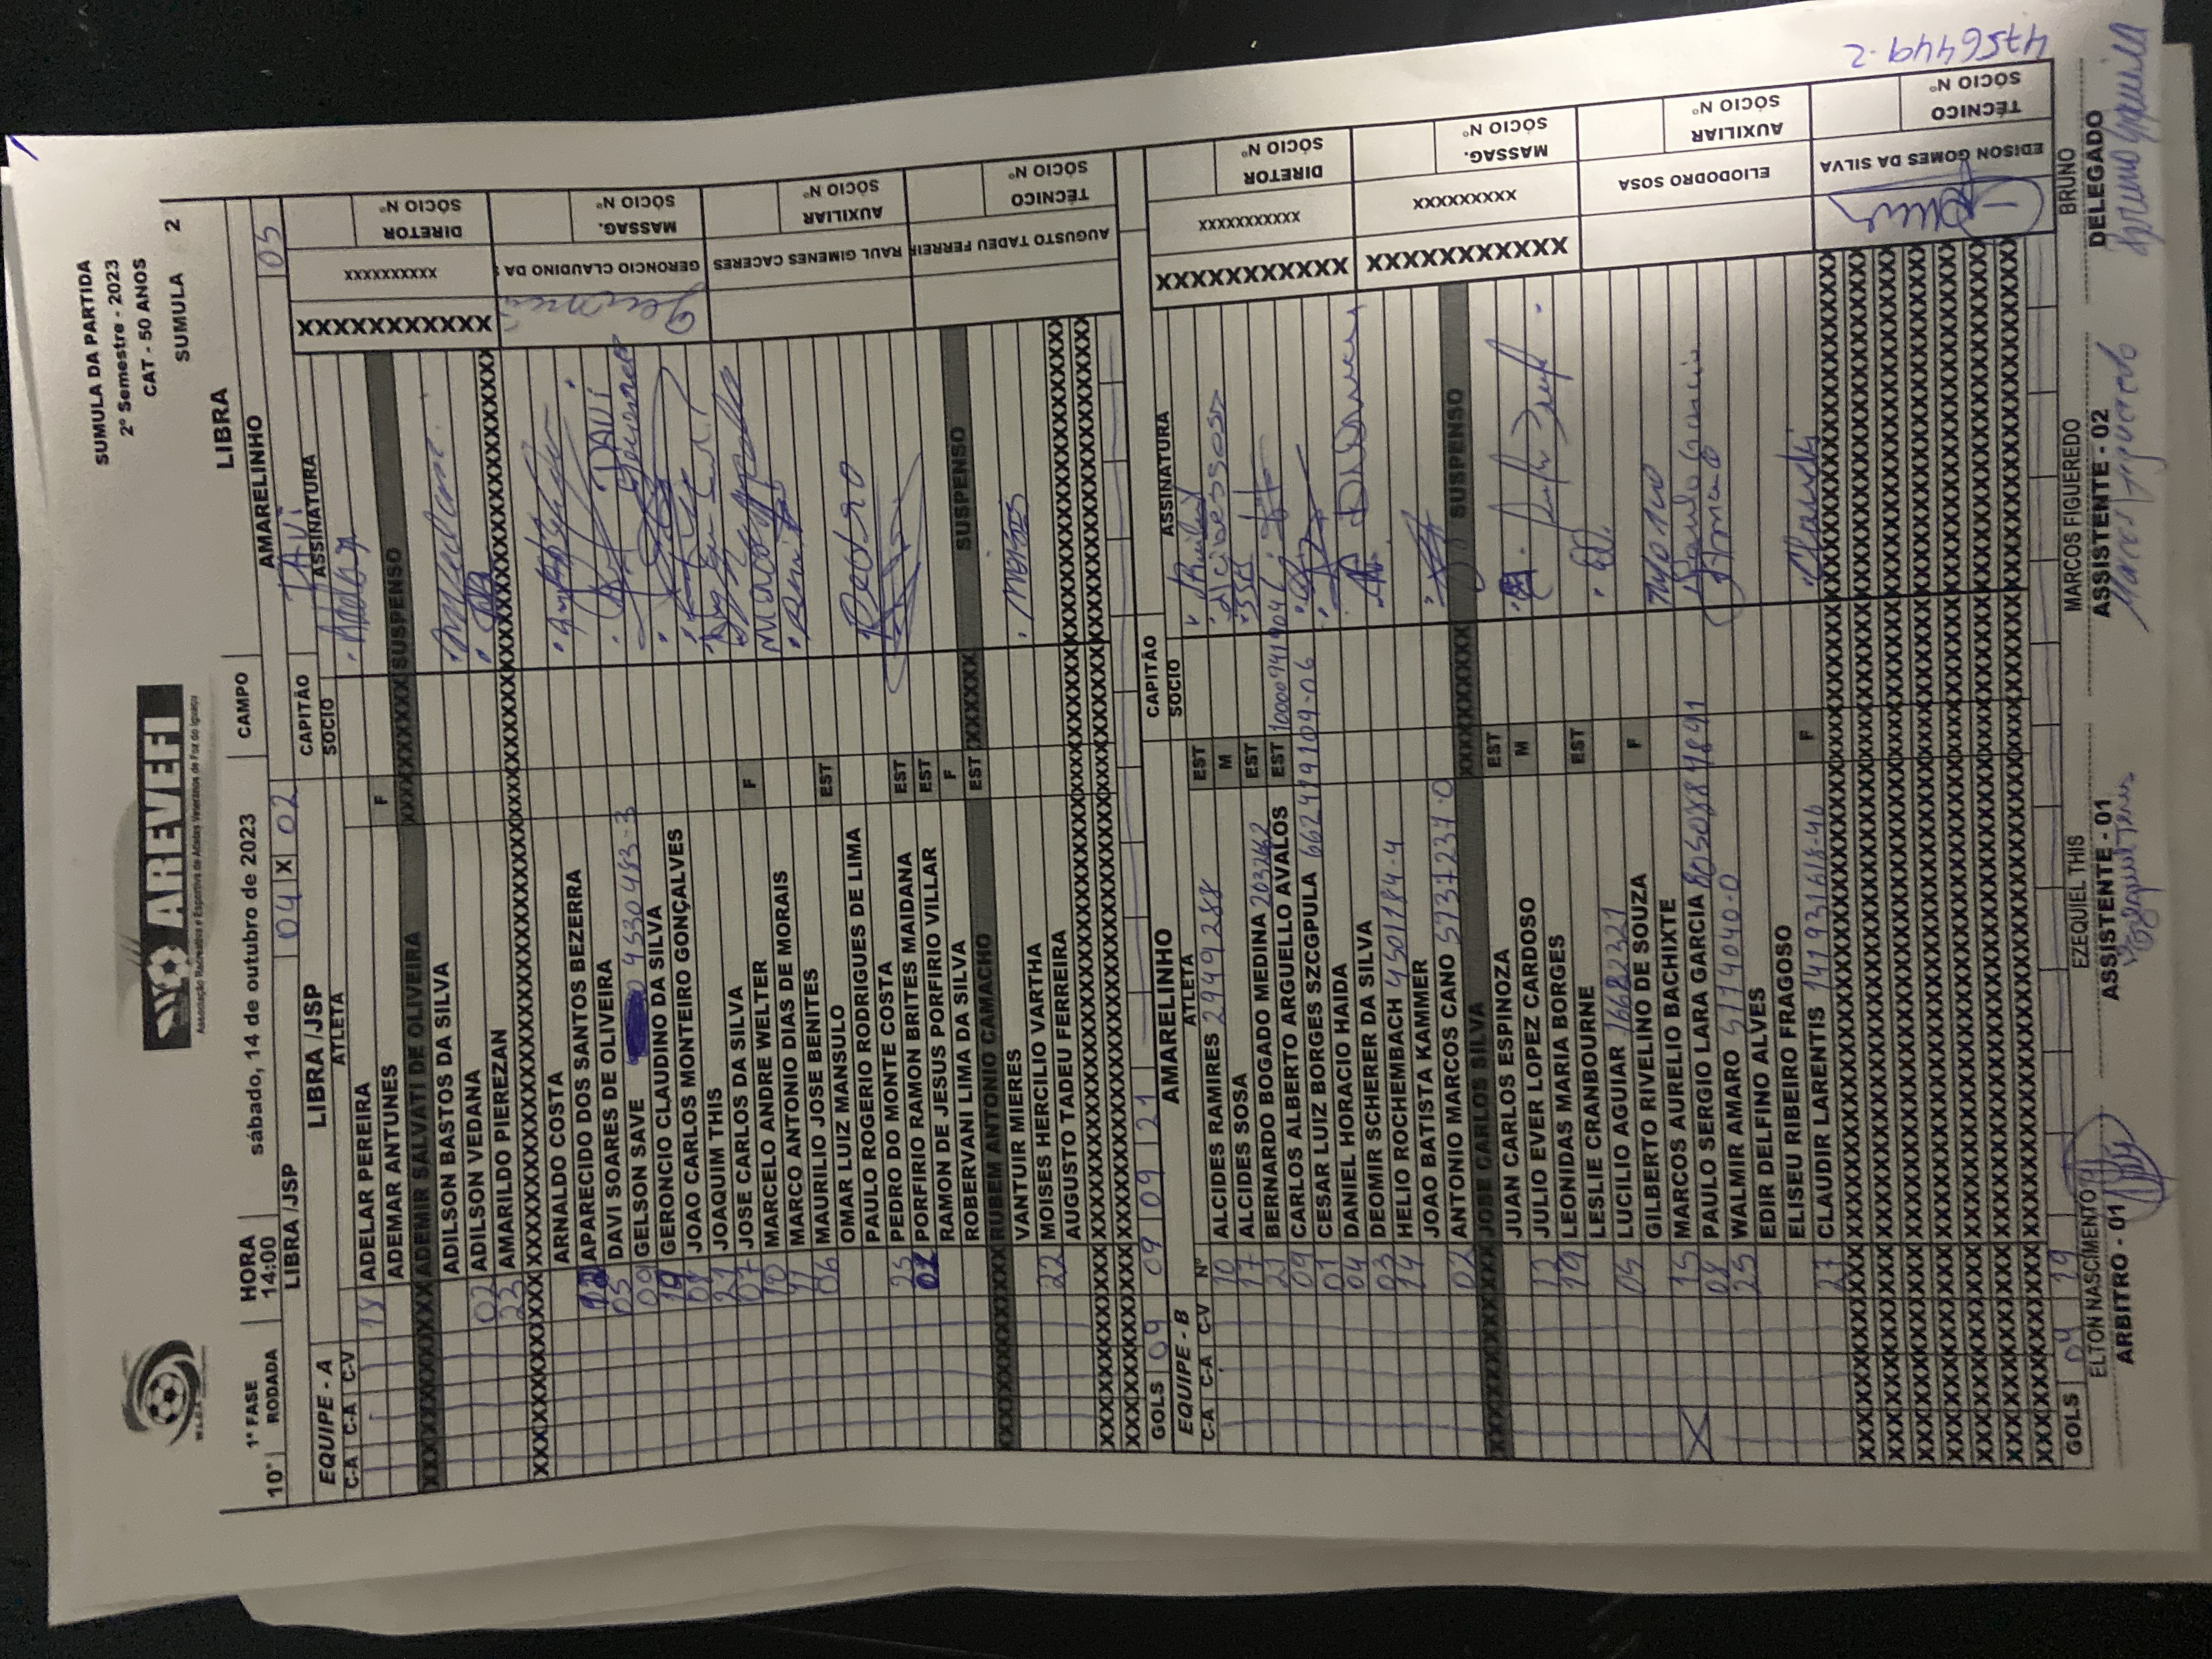 SUMULA DA PARTIDA
2º Semestre - 2023
CAT - 50 ANOS
SUMULA 2
AREVEFI
Associação Recreativa e Esportiva de Atletas Veteranos de Foz do Iguaçu
1ª FASE HORA sábado, 14 de outubro de 2023 CAMPO LIBRA
10ª RODADA 14:00
LIBRA /JSP 04 X 02 AMARELINHO 05
EQUIPE - A LIBRA /JSP CAPITÃO DAVI
C-A C-A C-V ATLETA SOCIO ASSINATURA
18 ADELAR PEREIRA
ADEMAR ANTUNES F
XXXXXXXXXXXX ADEMIR SALVATI DE OLIVEIRA XXXXXXXXX SUSPENSO
ADILSON BASTOS DA SILVA
02 ADILSON VEDANA
23 AMARILDO PIEREZAN
ARNALDO COSTA
APARECIDO DOS SANTOS BEZERRA
05 DAVI SOARES DE OLIVEIRA DAVI
09 GELSON SAVE 4530483-3
19 GERONCIO CLAUDINO DA SILVA
JOAO CARLOS MONTEIRO GONÇALVES
21 JOAQUIM THIS
07 JOSE CARLOS DA SILVA F
10 MARCELO ANDRE WELTER
11 MARCO ANTONIO DIAS DE MORAIS
06 MAURILIO JOSE BENITES EST
OMAR LUIZ MANSULO
PAULO ROGERIO RODRIGUES DE LIMA
25 PEDRO DO MONTE COSTA EST Pedro
PORFIRIO RAMON BRITES MAIDANA EST
RAMON DE JESUS PORFIRIO VILLAR F
ROBERVANI LIMA DA SILVA EST
XXXXXXXXXXXX RUBEM ANTONIO CAMACHO XXXXXX SUSPENSO
VANTUIR MIERES
22 MOISES HERCILIO VARTHA Moises
AUGUSTO TADEU FERREIRA
GOLS 09 09 09 21
XXXXXXXXXXX XXXXXXXXXX DIRETOR SÓCIO Nº
GERONCIO CLAUDINO DA S MASSAG. SÓCIO Nº
RAUL GIMENES CACERES AUXILIAR SÓCIO Nº
AUGUSTO TADEU FERREIR TÉCNICO SÓCIO Nº
EQUIPE - B AMARELINHO CAPITÃO
C-A C-A C-V Nº ATLETA SOCIO ASSINATURA
10 ALCIDES RAMIRES 2949288 EST
17 ALCIDES SOSA M alcides sosa
21 BERNARDO BOGADO MEDINA 203262 EST
09 CARLOS ALBERTO ARGUELLO AVALOS EST
01 CESAR LUIZ BORGES SZCGPULA 662419109-06
04 DANIEL HORACIO HAIDA
03 DEOMIR SCHERER DA SILVA
14 HELIO ROCHEMBACH 4501184-4
JOAO BATISTA KAMMER
02 ANTONIO MARCOS CANO 5737237-0
XXXXXXXXXXXX JOSE CARLOS SILVA XXXXXXXXX SUSPENSO
JUAN CARLOS ESPINOZA EST
12 JULIO EVER LOPEZ CARDOSO M
19 LEONIDAS MARIA BORGES
LESLIE CRANBOURNE EST
05 LUCILIO AGUIAR 16682321
GILBERTO RIVELINO DE SOUZA F
15 MARCOS AURELIO BACHIXTE
08 PAULO SERGIO LARA GARCIA
25 WALMIR AMARO 5174040-0
EDIR DELFINO ALVES
ELISEU RIBEIRO FRAGOSO
27 CLAUDIR LARENTIS 14193168-46 F
GOLS 04 19
XXXXXXXXXXX XXXXXXXXXXX DIRETOR SÓCIO Nº
XXXXXXXXXXX XXXXXXXXX MASSAG. SÓCIO Nº
ELIODODRO SOSA AUXILIAR SÓCIO Nº
EDISON GOMES DA SILVA TÉCNICO SÓCIO Nº
4756449-2
ELTON NASCIMENTO EZEQUIEL THIS MARCOS FIGUEREDO BRUNO
ARBITRO - 01 ASSISTENTE - 01 ASSISTENTE - 02 DELEGADO